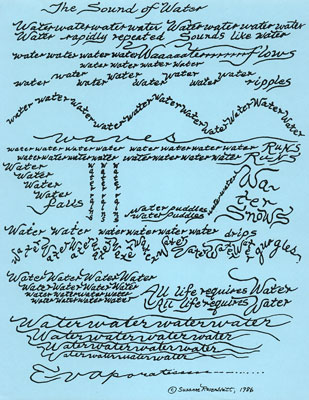 The Sound of Water
Waterwaterwaterwater Waterwaterwaterwater
Water rapidly repeated Sounds like water
waterwaterwaterwaterWaaaaaterrrrrrr flows
waterwaterwaterwater
water water water water water ripples
waterwaterwaterWaterWaterWaterWaterWaterWater
waves
waterwaterwaterwater waterwaterwaterwater Runs
waterwaterwaterwater waterwaterwaterwater Runs
Water
Water
Water
Water
falls
water water water
waterpuddles
waterpuddles
Wa-
ter
Snows
Water Water waterwaterwater drips
gurgles,
WaterWaterWaterWater
WaterWaterWaterWater
waterwaterwaterwater
waterwaterwaterwater
All life requires Water
All life requires Water
Waterwaterwaterwater
Waterwaterwaterwater
Waterwaterwaterwater
Waterwaterwaterwater
Waterwaterwaterwater
Evaporates
© Susann 1986